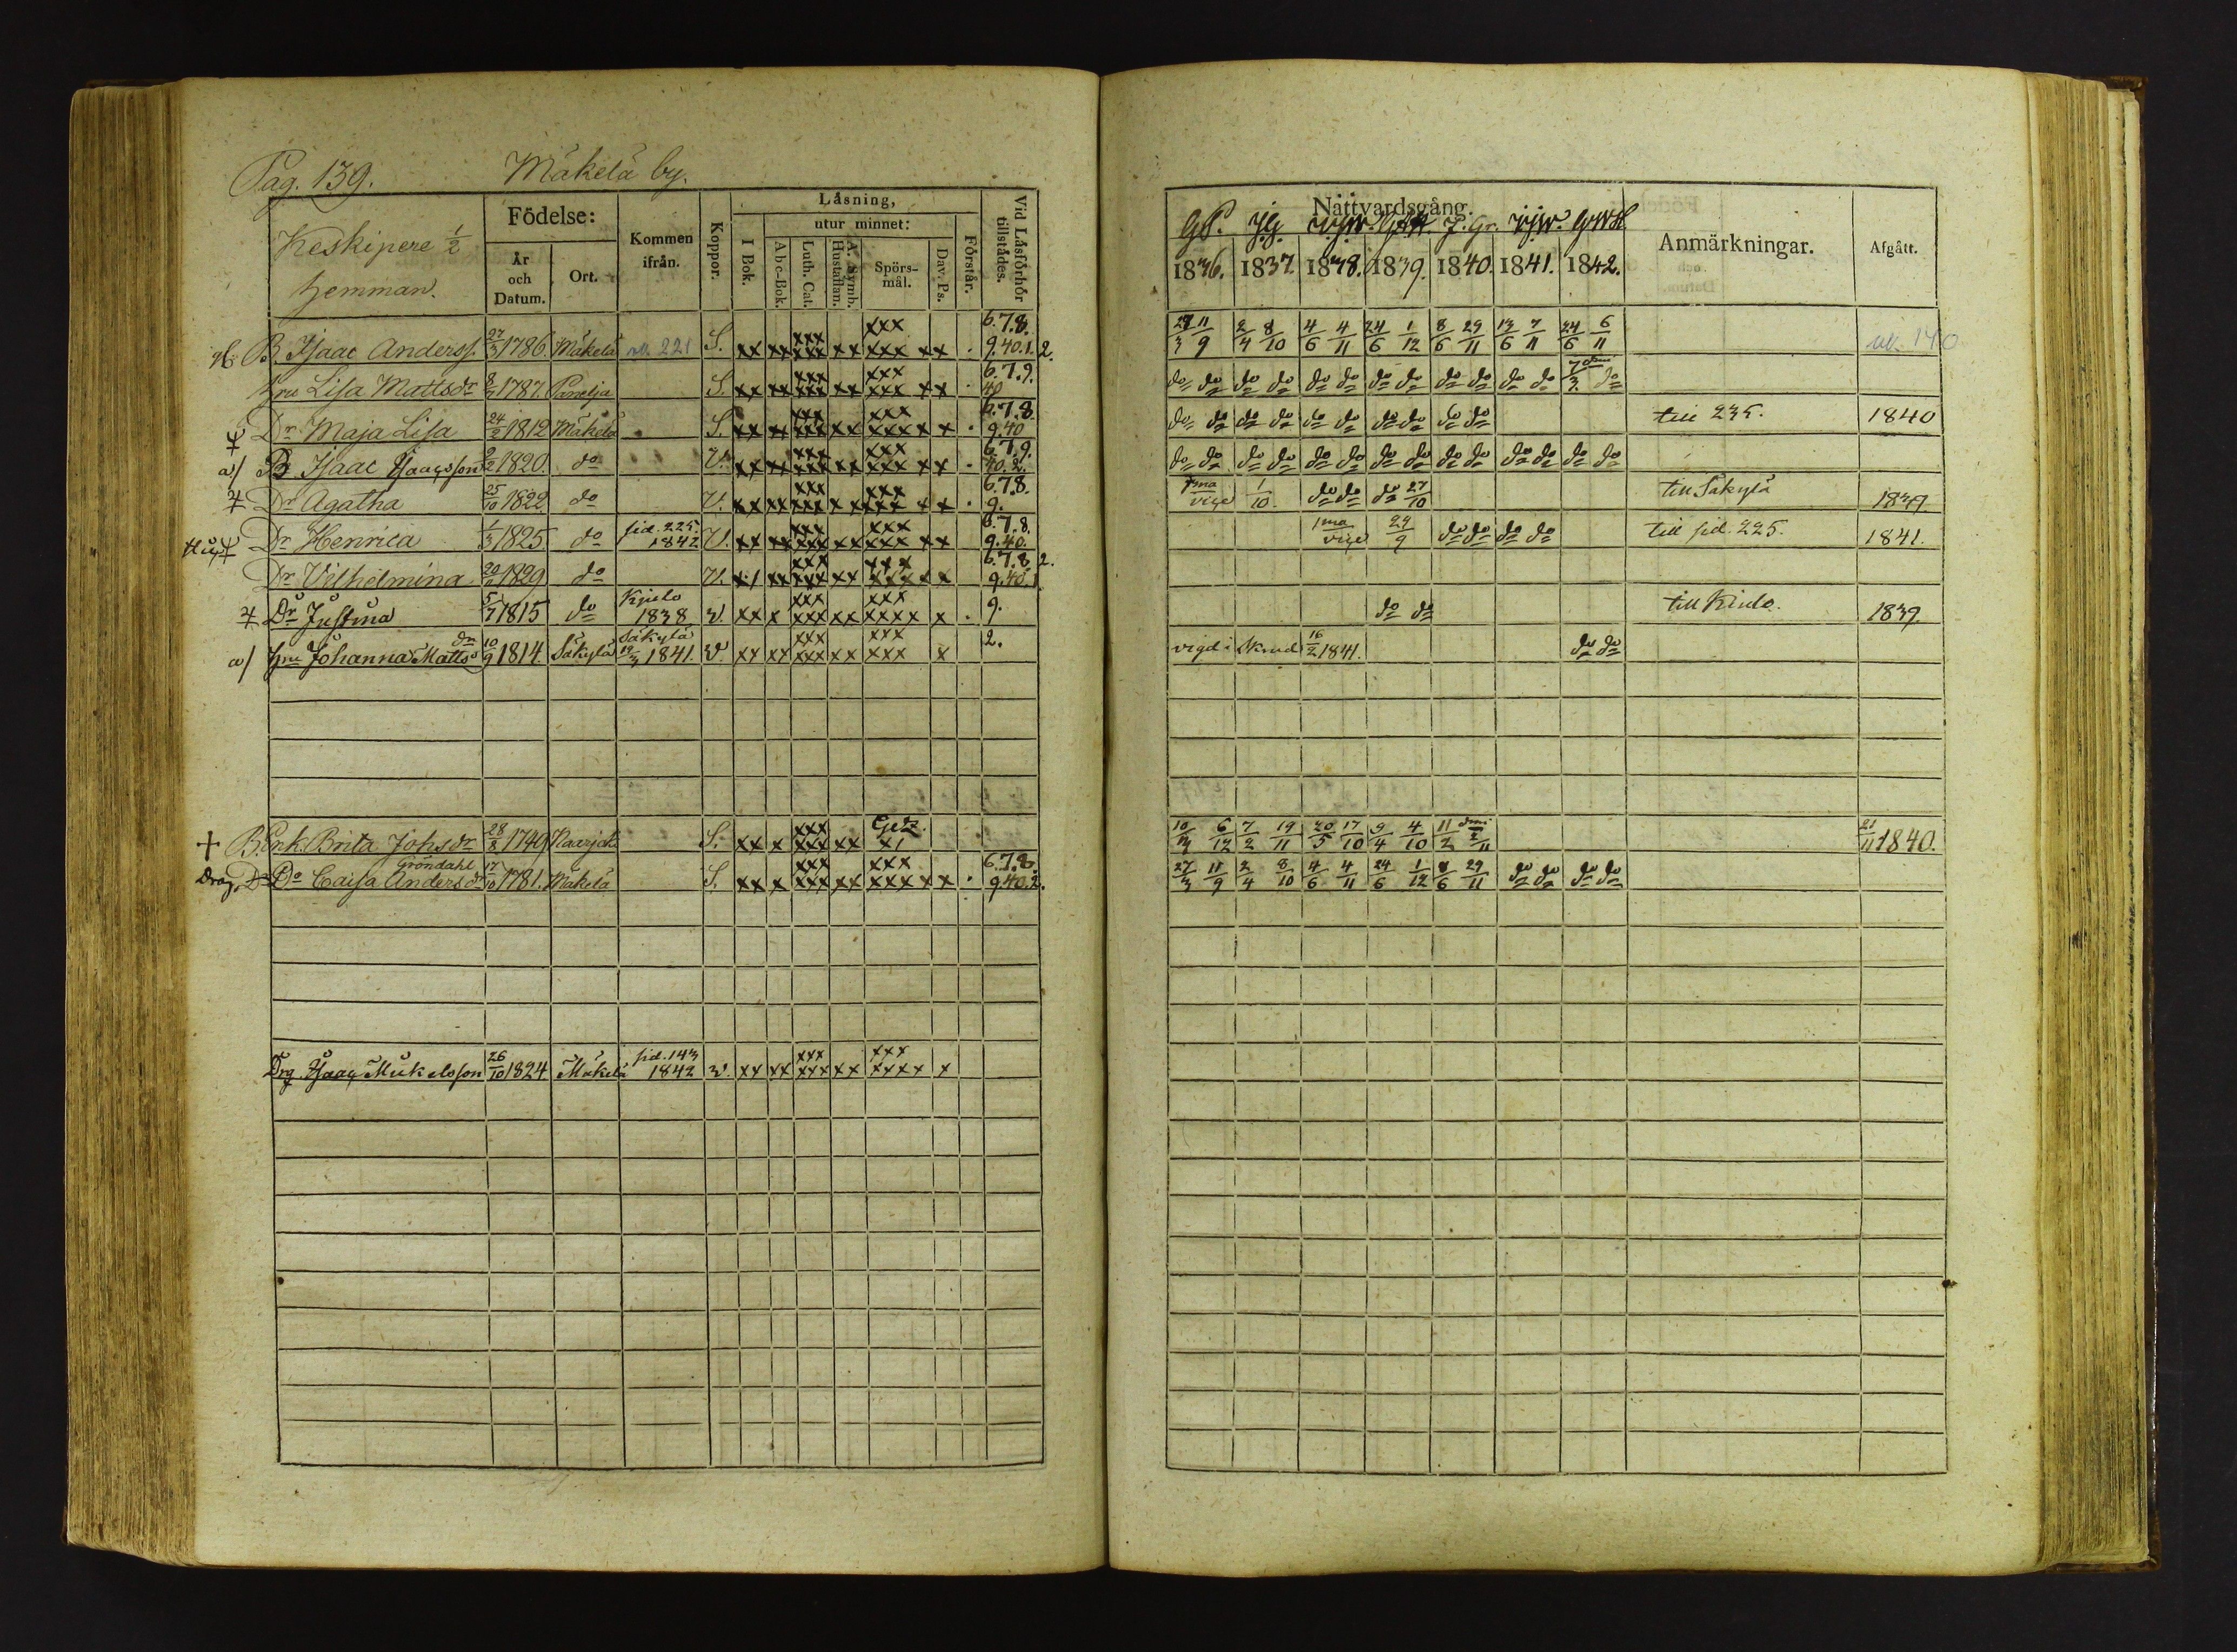 Pag. 139. Mäkelä by.
Keskipere 1/2 hemman.
Födelse: År och Datum. Ort. Kommen ifrån. Koppor. Läsning, I Bok. utur minnet: Abc-Bok. Luth. Cat. A. Symb. Hustaflan. Spörsmål. Dav. Ps. Förstår. Vid Läsförhör tillstädes.
Nattvardsgång. 1836. 1837. 1838. 1839. 1840. 1841. 1842. Anmärkningar. Afgått.
B. Isaac Anderss. 27/3 1786. Mäkelä 221 S. xx xx xxx xxx xx xxx xxx xx . 6.7.8. 9.40.1.2. 27/3 11/9 2/4 8/10 4/6 4/11 24/6 1/12 8/6 29/11 13/6 7/11 24/6 6/11
hru Lisa Mattsdr 1787. Panelja S. xx xx xxx xxx xx xxx xxx xx . 6.7.9. 40 do do do do do do do do do do do do do
Dr Maja Lisa 24/2 1812 Mäkelä S. xx xx xxx xxx xx xxx xxx x x . 6.7.8. 9.40 do do do do do do do do do do till 235. 1840
a/ B Isaac Isaacsson 1820. do V. xx xx xxx xxx xx xxx xxx xx . 6.7.9. 40.2. do do do do do do do do do do do do do do
Dr Agatha 25/10 1822 do V. xx xx xxx xxx xx xxx xxx xx . 6.7.8. 9. 1ma vice 1/10. do do do 27/10 till Säkylä 1839
Dr Henrica 1/3 1825. do sid. 225. 1842 V. xx xx xxx xxx xx xxx xxx xx 6.7.8. 9.40. 1ma vice 29/9 do do do do till sid. 225. 1841.
Dr Vilhelmina 1829 do V. xx xxx xxx xx xxx 6.7.8. 2. 9.40.1
Dr Justina 5/7 1815 do Kjulo 1838 v. xx x xxx xxx xx xxx xxxx x . 9. do do till Kiulo. 1839.
a/ hru Johanna Mattsdr 10/9 1814. Säkylä Säkylä 1841. v. xx xx xxx xxx xx xxx xxx x 2. vigd i 16/2 1841. do do
+ B. Enk. Brita Johsdr 28/8 1749 S. xx x xxx xxx xx x1 10/4 6/12 7/2 19/11 20/5 17/10 9/4 4/10 11/2 2/11 21/11 1840.
Do Caisa Andersdr Gröndahl 17/10 1781. Mäkelä S. xx x xxx xxx xx xxx xxx xx . 6.7.8. 9.40.2. 27/3 11/9 2/4 8/10 4/6 4/11 24/6 1/12 8/6 29/11 do do do do
Drg. Isaac Mickelsson 26/10 1824 Mäkelä sid. 143 1842 v. xx xx xxx xxx xx xxx xxxx x